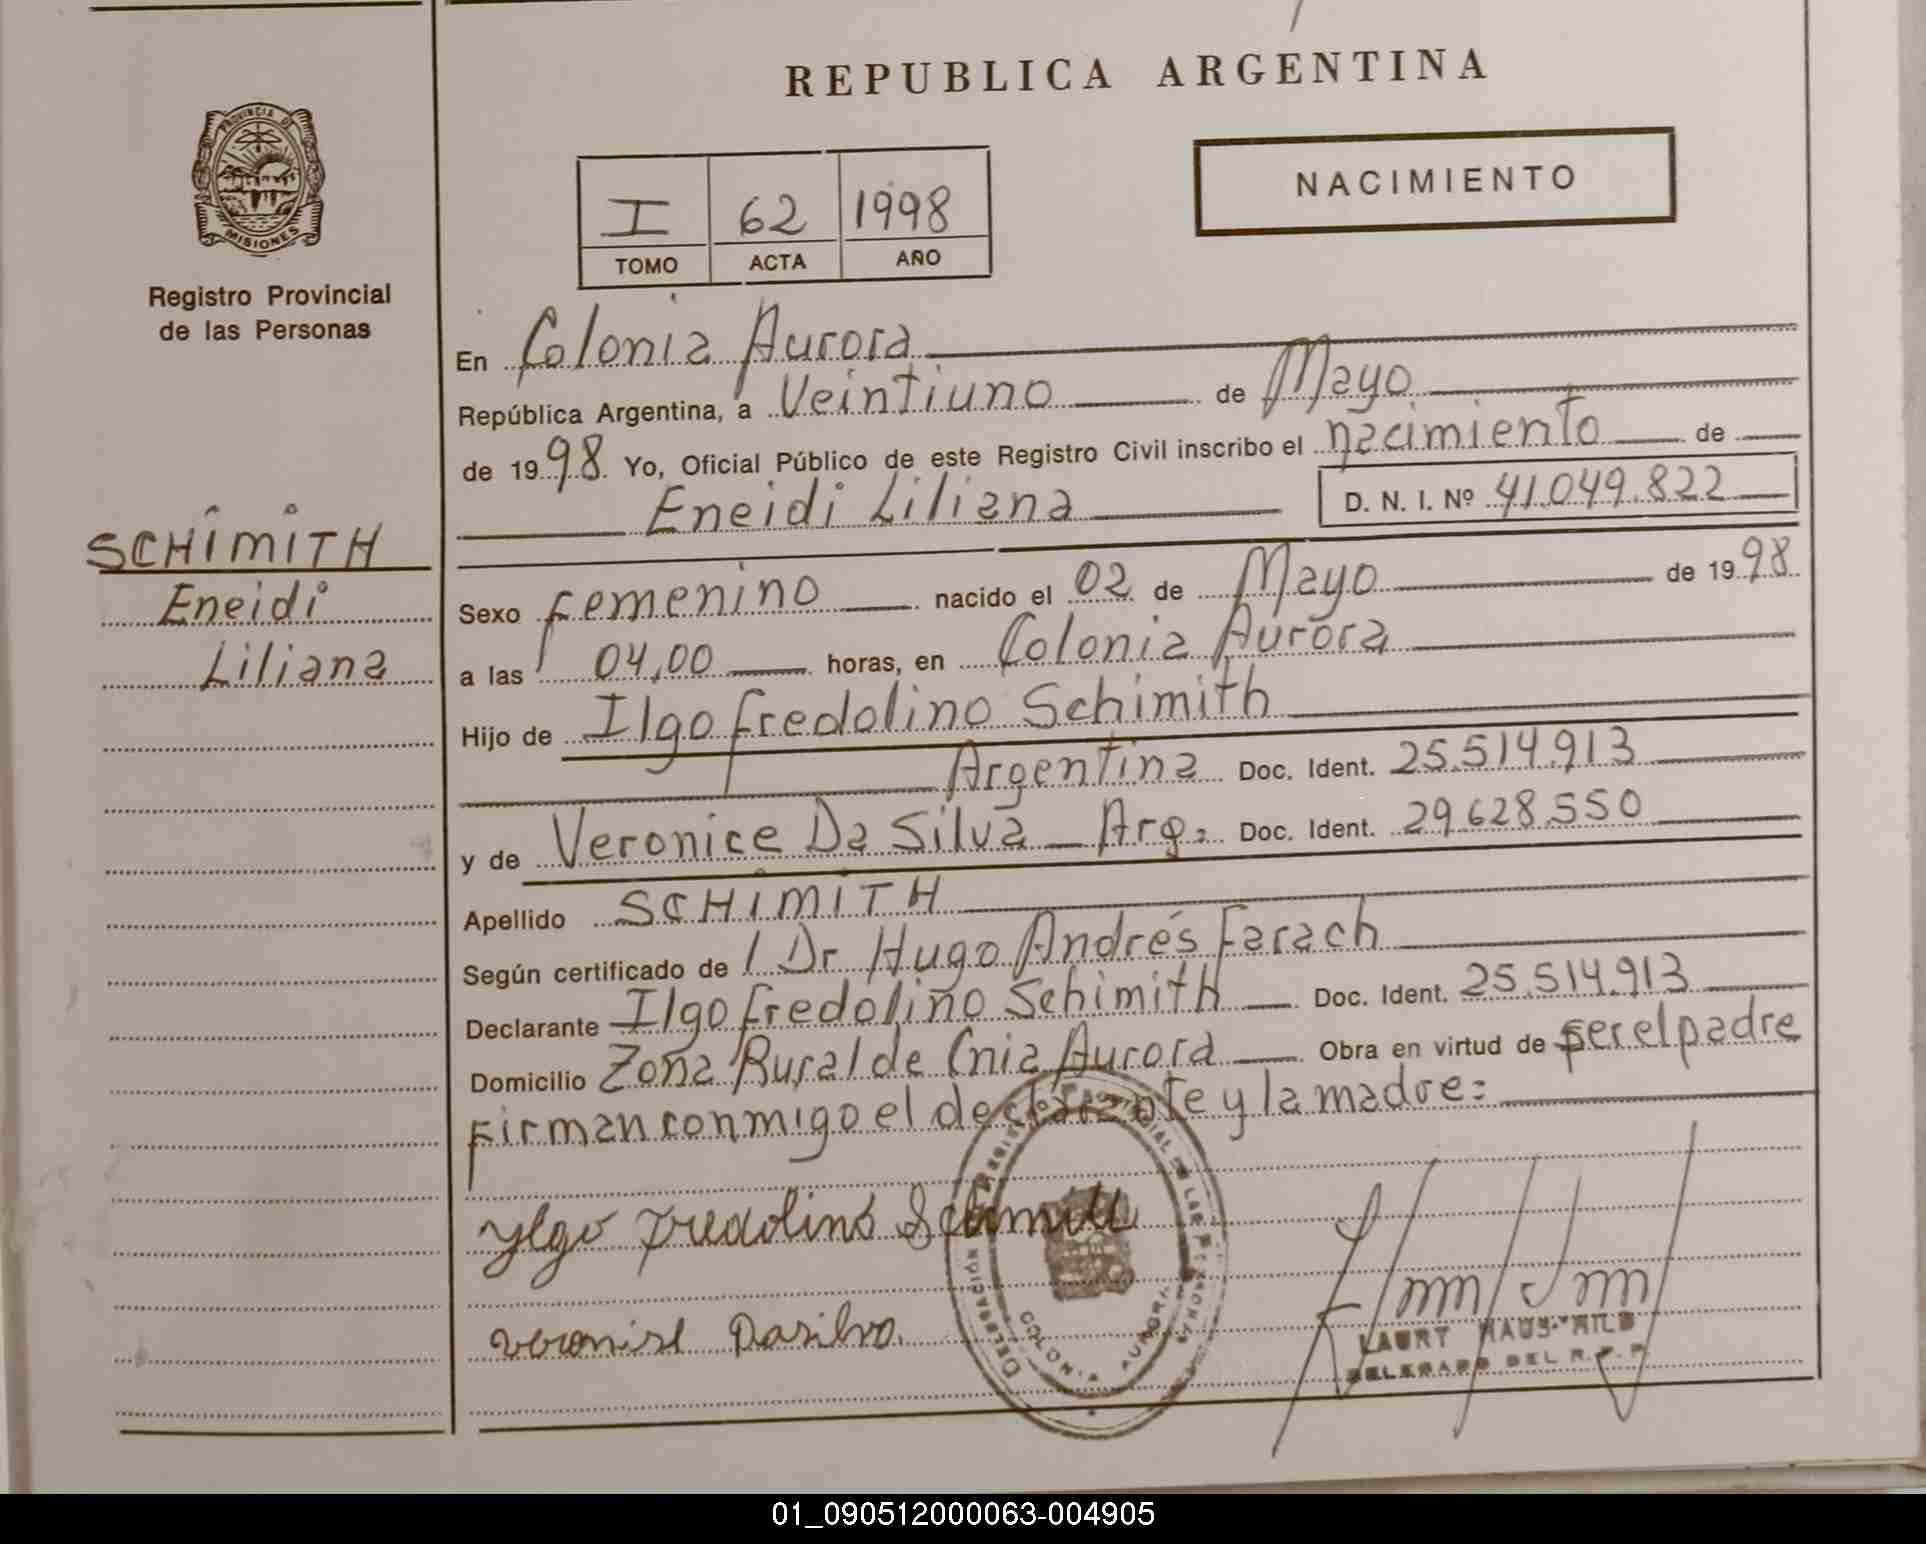 REPUBLICA ARGENTINA
PROVINCIA DE
MISIONES
Registro Provincial
de las Personas
I 62 1998
TOMO ACTA AÑO
NACIMIENTO
SCHIMITH
Eneidi
Liliana
En Colonia Aurora
República Argentina, a Veintiuno de Mayo
de 1998. Yo, Oficial Público de este Registro Civil inscribo el nacimiento de
Eneidi Liliana
D. N. I. Nº 41.049.822
Sexo Femenino nacido el 02 de Mayo de 1998.
a las 04,00 horas, en Colonia Aurora
Hijo de Ilgo Fredolino Schimith
Argentina Doc. Ident. 25.514.913
y de Veronice Da Silva Arg. Doc. Ident. 29.628.550
Apellido SCHIMITH
Según certificado de Dr Hugo Andrés Farach
Declarante Ilgo Fredolino Schimith Doc. Ident. 25.514.913
Domicilio Zona Rural de Cnia Aurora Obra en virtud de ser el padre
Firman conmigo el declarante y la madre:
Ylgo Fredolino
Dasilva
DELEGACION REGISTRO PROVINCIAL DE LAS PERSONAS
COLONIA AURORA
LAURY
DELEGADO DEL R. P. P.
01_090512000063-004905